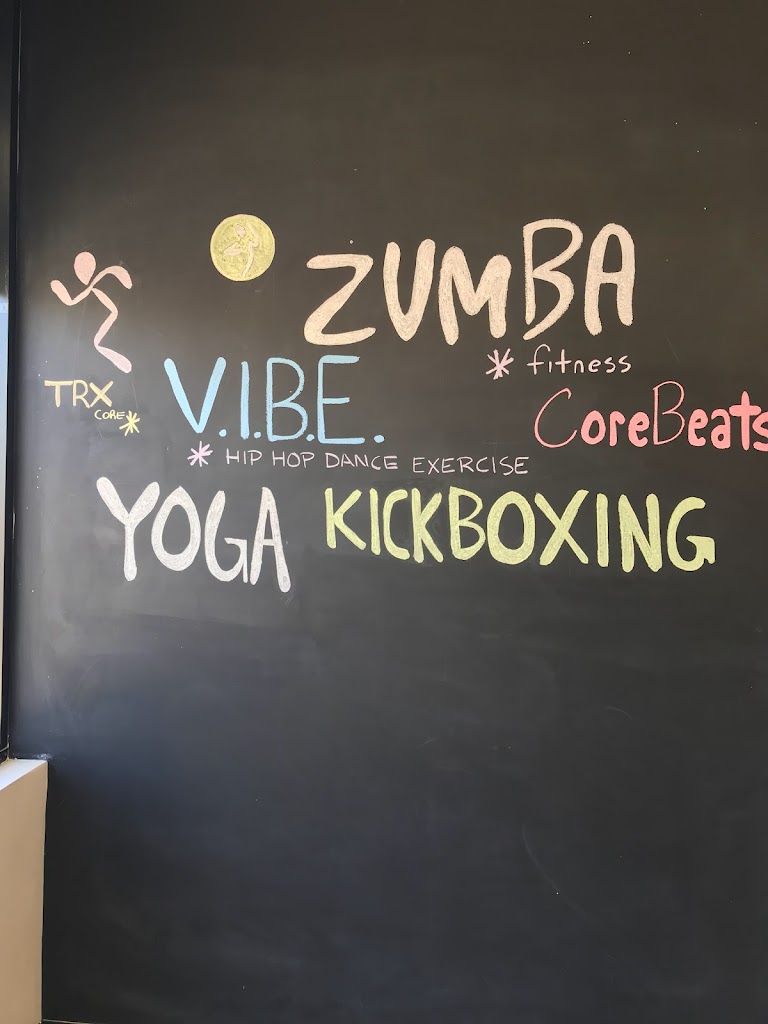 ZUMBA
* fitness
TRX
CORE *
V.I.B.E.
* HIP HOP DANCE EXERCISE
CoreBeats
YOGA
KICKBOXING